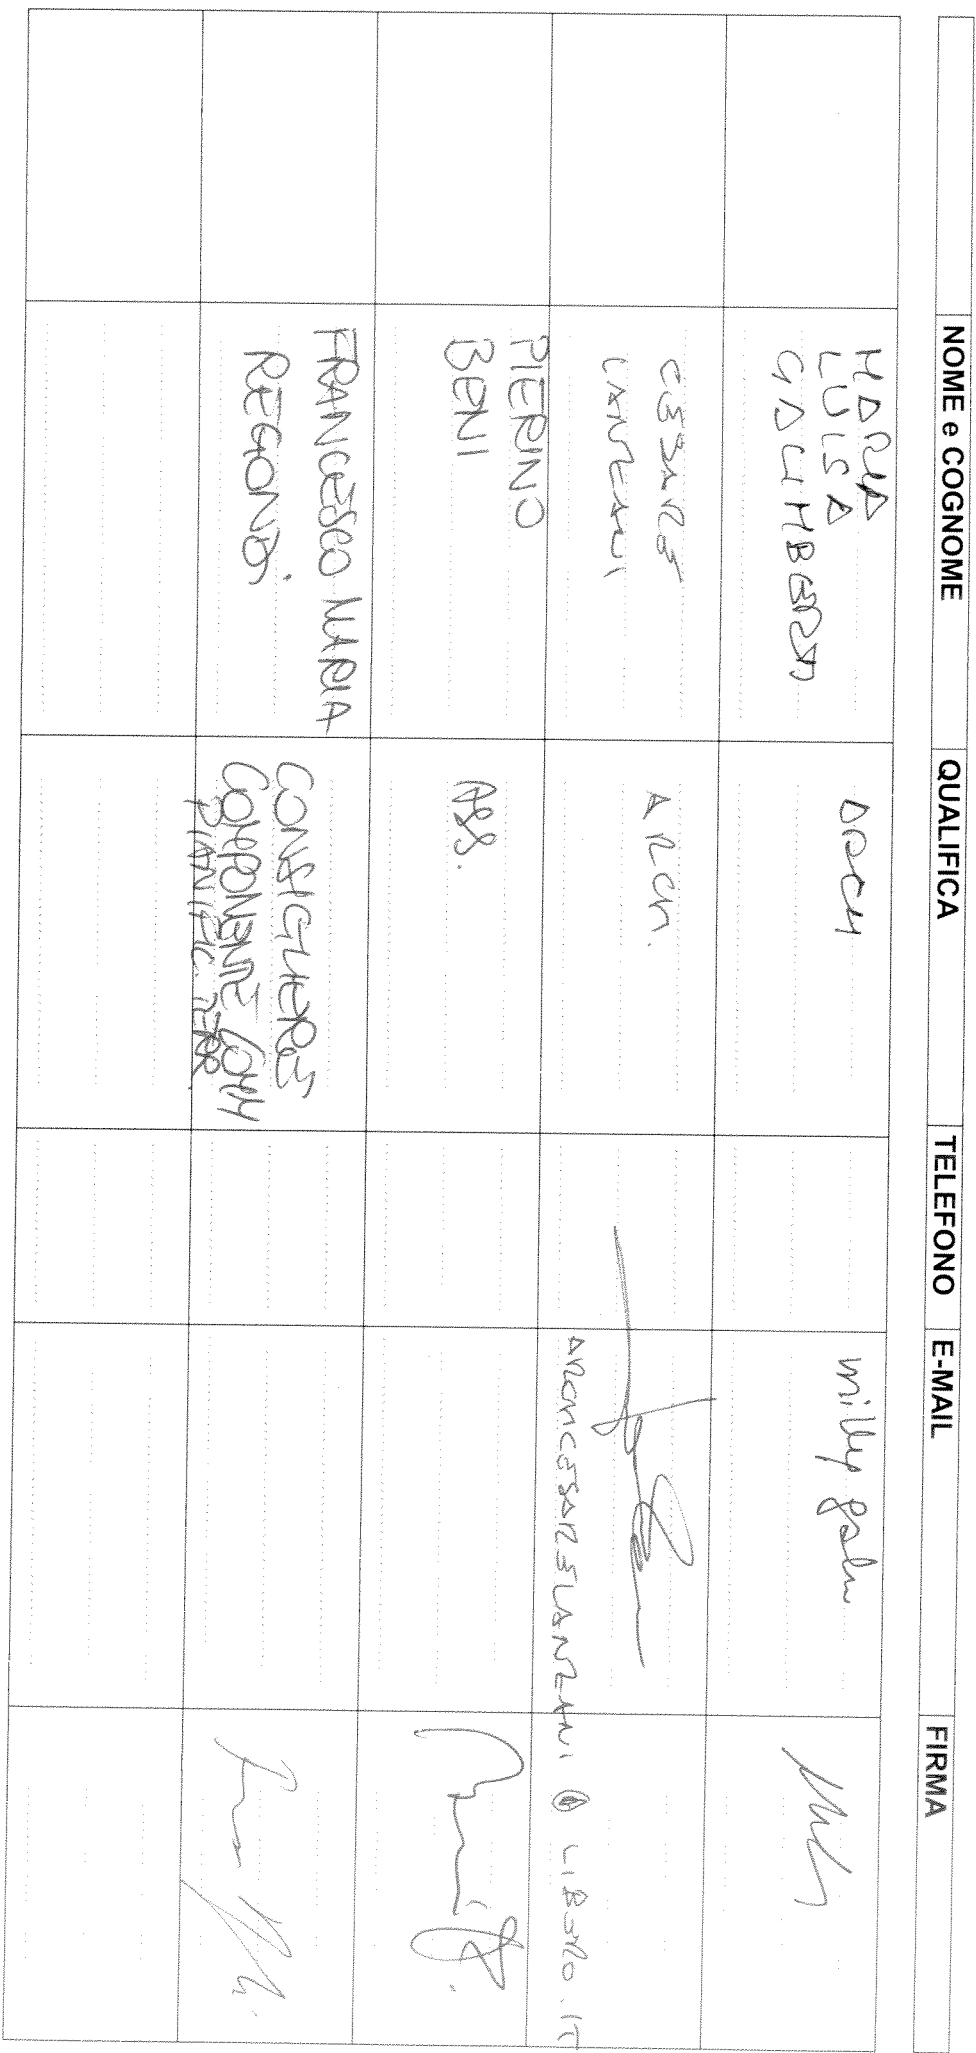 NOME e COGNOME QUALIFICA TELEFONO E-MAIL FIRMA
MARIA
LUISA
ARCH
milly
CESARE
LANZANI
ARCH.
ARCHCESARELANZANI @ LIBERO.IT
PIERINO
BENI
ASS.
FRANCESCO MARIA
REGONDI
CONSIGLIERE
COMPONENTE COMM
PIANIFIC. TERR.